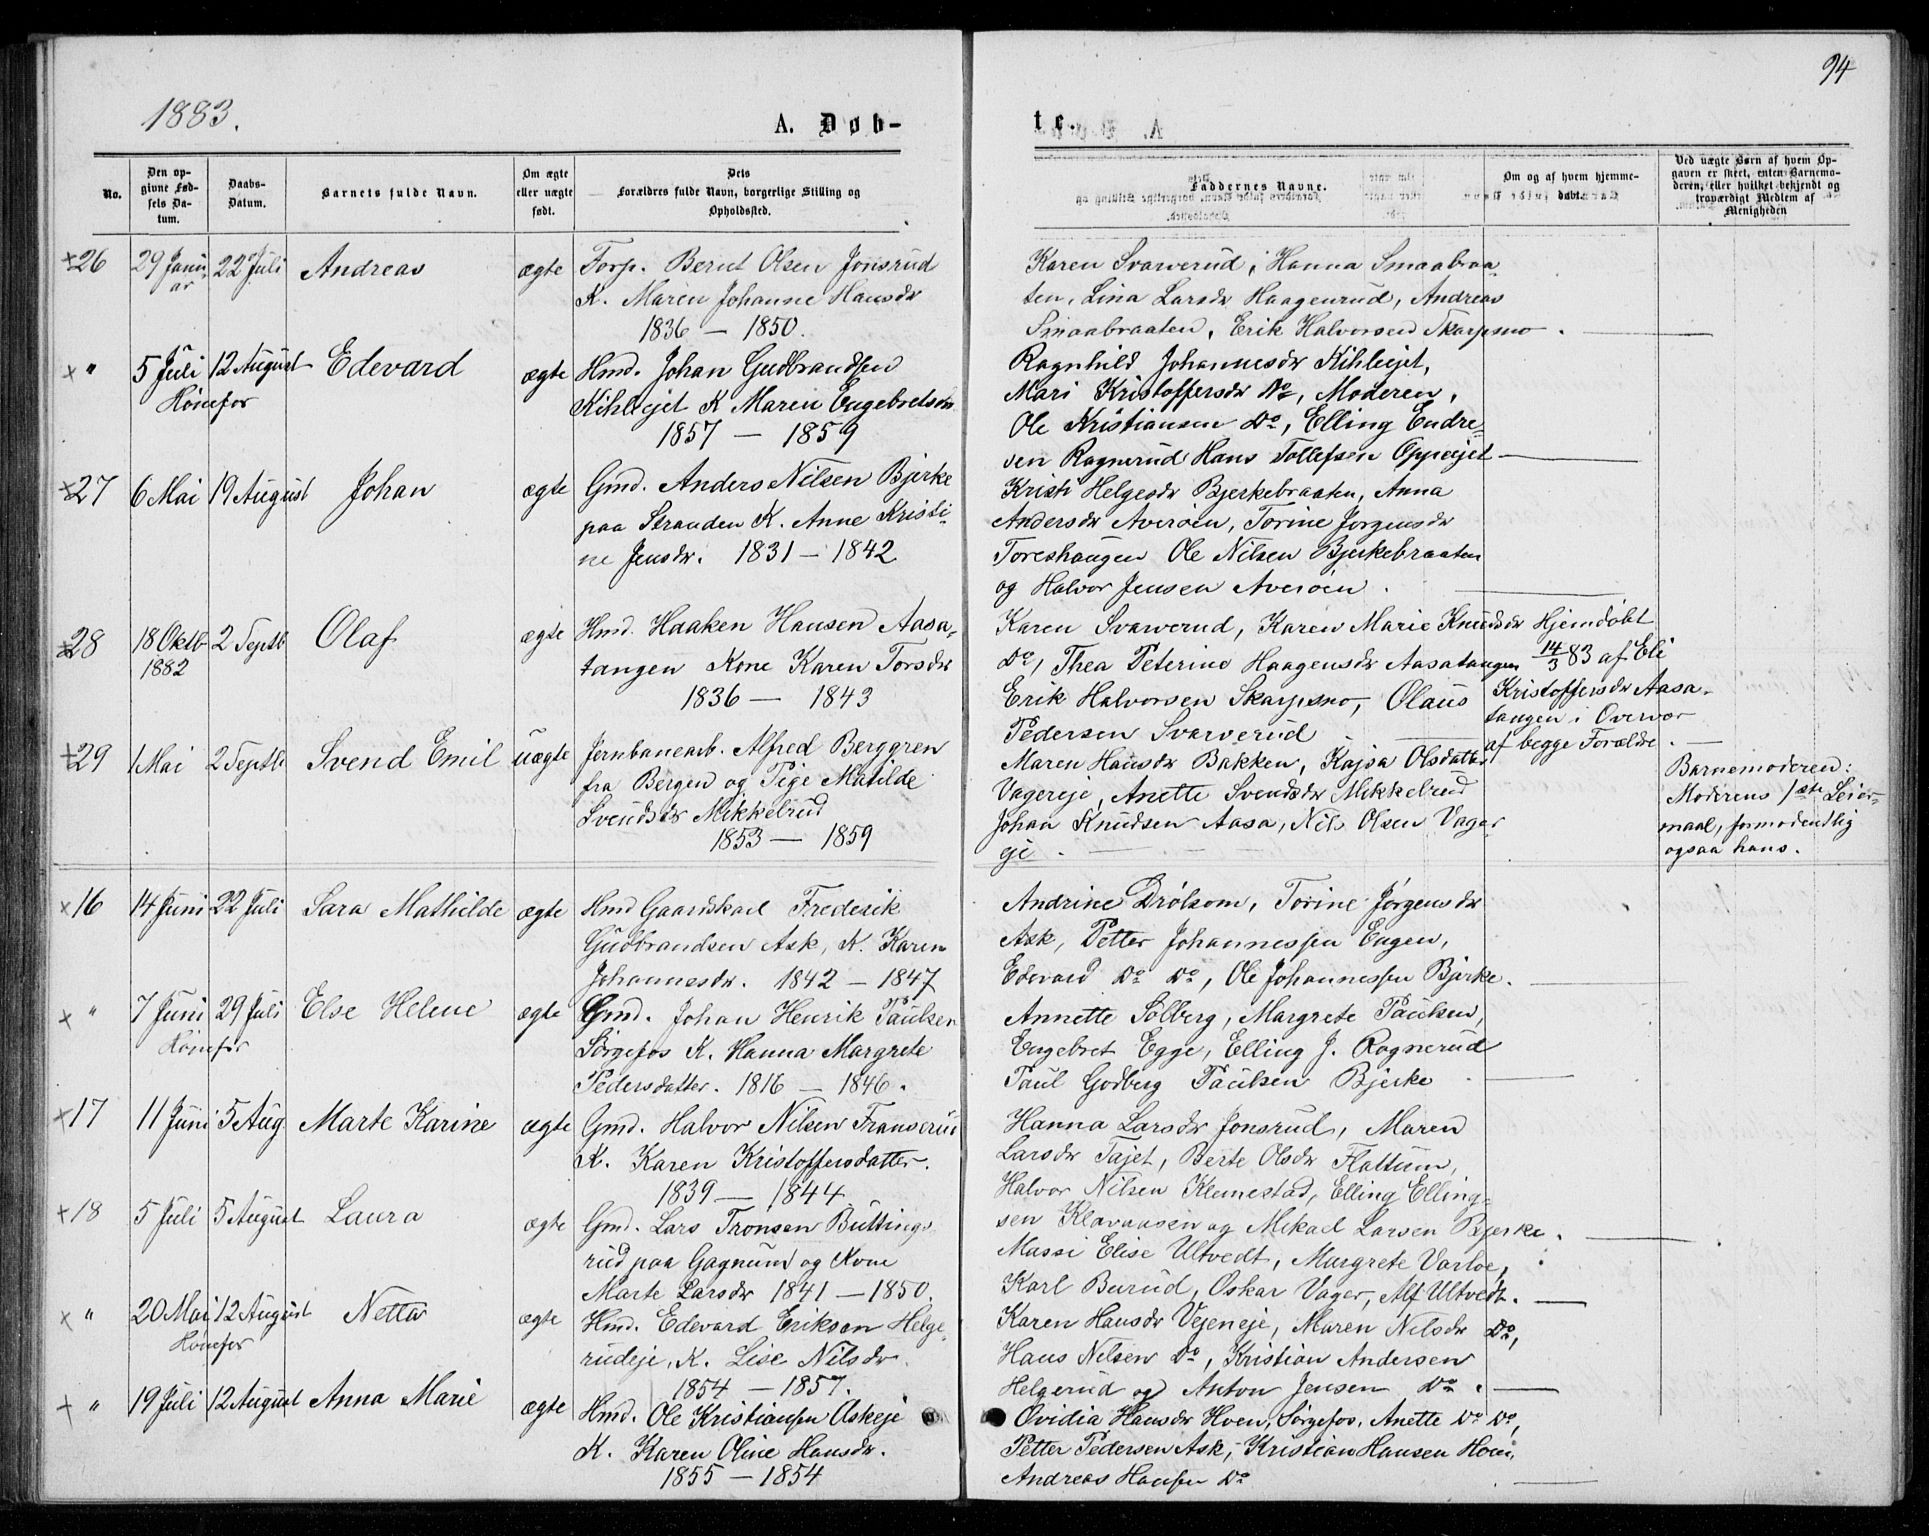 1883.
A. Døb-
No.
Den op-
givne Fød-
sels Da-
tum.
Daabs-
Datum.
Barnets fulde Navn.
Om ægte
eller uægte
født.
Dets
Forældres fulde Navn, borgerlige Stilling og
Opholdssted.
26 29 Janu- 22 Juli Andreas ægte Torp. Bernt Olsen Jonsrud
ar K. Maren Johanne Hansdr
1836 — 1850.
" 5 Juli 12 August Edevard ægte Hmd. Johan Gudbrandsen
Hønefos Kihleiet K Maren Engebretsdr
1857 — 1859
27 6 Mai 19 August Johan ægte Gmd. Anders Nilsen Bjerke
paa Stranden K. Anne Kristi-
ne Jensdr. 1831 — 1842
28 18 Oktb 2 Septb Olaf ægte Hmd. Haaken Hansen Aasa-
1882 tangen Kone Karen Torsdr
1836 — 1843
29 1 Mai 2 Septb Svend Emil uægte Jernbanearb. Alfred Berggren
fra Bergen og Pige Matilde
Svendsdr Mikkelrud
1853 — 1859
16 14 Juni 22 Juli Sara Mathilde ægte Hmd Gaardskarl Frederik
Gudbrandsen Ask, K. Karen
Johannesdr. 1842 — 1847
" 7 Juni 29 Juli Else Helene ægte Gmd. Johan Henrik Paulsen
Hønefos Sørgefos K. Hanna Margrete
Pedersdatter. 1816 — 1846.
17 11 Juni 5 Aug. Marte Karine ægte Gmd. Halvor Nilsen Franserud
K. Karen Kristoffersdatter.
1839 — 1844
18 5 Juli 5 August Laura ægte Gmd. Lars Tronsen Buttings-
rud paa Gagnum og Kone
Marte Larsdr 1841 — 1850.
" 20 Mai 12 August Netta ægte Hmd. Edevard Eriksen Helge-
Hønefos rudeje, K. Lise Nilsdr.
1854 — 1857.
" 19 Juli 12 August Anna Marie ægte Hmd. Ole Kristiansen Askeje
K. Karen Oline Hansdr.
1855 — 1854
94
te.
Faddernes Navne.
Om og af hvem hjemme-
døbt.
Ved uægte Børn af hvem Op-
gaven er skeet, enten Barnemo-
deren, eller hvilket bekjendt og
troværdigt Medlem af
Menigheden
Karen Svarverud, Hanna Smaabraa-
ten, Lina Larsdr Haagenrud, Andreas
Smaabraaten, Erik Halvorsen Skarpsno.
Ragnhild Johannesdr Kihleiet,
Mari Kristoffersdr Do, Moderen,
Ole Kristiansen Do, Elling Endre-
sen Ragnerud Hans Tollefsen Oppeiet
Kristi Helgesdr Bjerkebraaten, Anna
Andersdr Averøen, Torine Jorgensdr
Toreshaugen Ole Nilsen Bjerkebraaten
og Halvor Jensen Averøen.
Karen Svarverud, Karen Marie Knudsdr Hjemdøbt
Do, Thea Peterine Haagensdr Aasatangen 14/3 83 af Eli
Erik Halvorsen Skarpsno, Olaus Kristoffersdr Aasa-
tangen i Overvær
Pedersen Svarverud
af begge Forælde.
Maren Hansdr Bakken, Kajsa Olsdatter Barnemoderen:
Vagereje, Anette Svendsdr Mikkelrud Moderens 1ste Leier-
Johan Knudsen Aasa, Nils Olsen Vager- maal, formodentlig
eje. ogsaa hans.
Andrine Drølsom, Torine Jørgensdr
Ask, Petter Johannessen Engen,
Edevard Do Do, Ole Johannessen Bjerke.
Annette Solberg, Margrete Paulsen,
Engebret Egge, Elling J. Ragnerud
Paul Godberg Paulsen Bjerke
Hanna Larsdr Jonsrud, Maren
Larsdr Tajet, Berte Olsdr Flattum,
Halvor Nilsen Klemestad, Elling Elling-
sen Klavaasen og Mikael Larsen Bjerke.
Massi Elise Ultvedt, Margrete Varloe,
Karl Burud, Oskar Vager, Alf Ultvedt.
Karen Hansdr Vejeneje, Maren Nilsdr Do,
Hans Nelsen Do, Kristian Andersen
Helgerud og Anton Jensen Do.
Ovidia Hansdr Hven, Sørgefos, Anette Do Do,
Petter Pedersen Ask, Kristian Hansen Hven,
Andreas Hansen Do